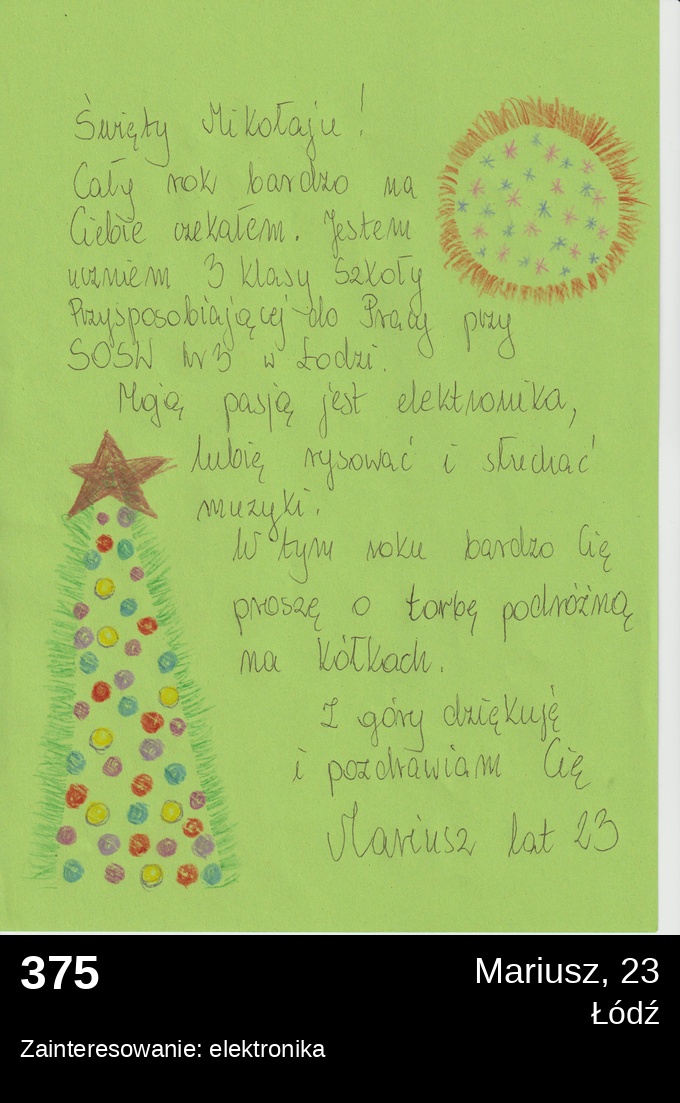 Święty Mikołaju!
Cały rok bardzo na
Ciebie czekałem. Jestem
uczniem 3 klasy Szkoły
Przysposobiającej do Pracy przy
SOSW nr 3 w Łodzi.
Moją pasją jest elektronika,
lubię rysować i słuchać
muzyki.
W tym roku bardzo Cię
proszę o torbę podróżną
na kółkach.
Z góry dziękuję
i pozdrawiam Cię
Mariusz lat 23
375
Mariusz, 23
Łódź
Zainteresowanie: elektronika